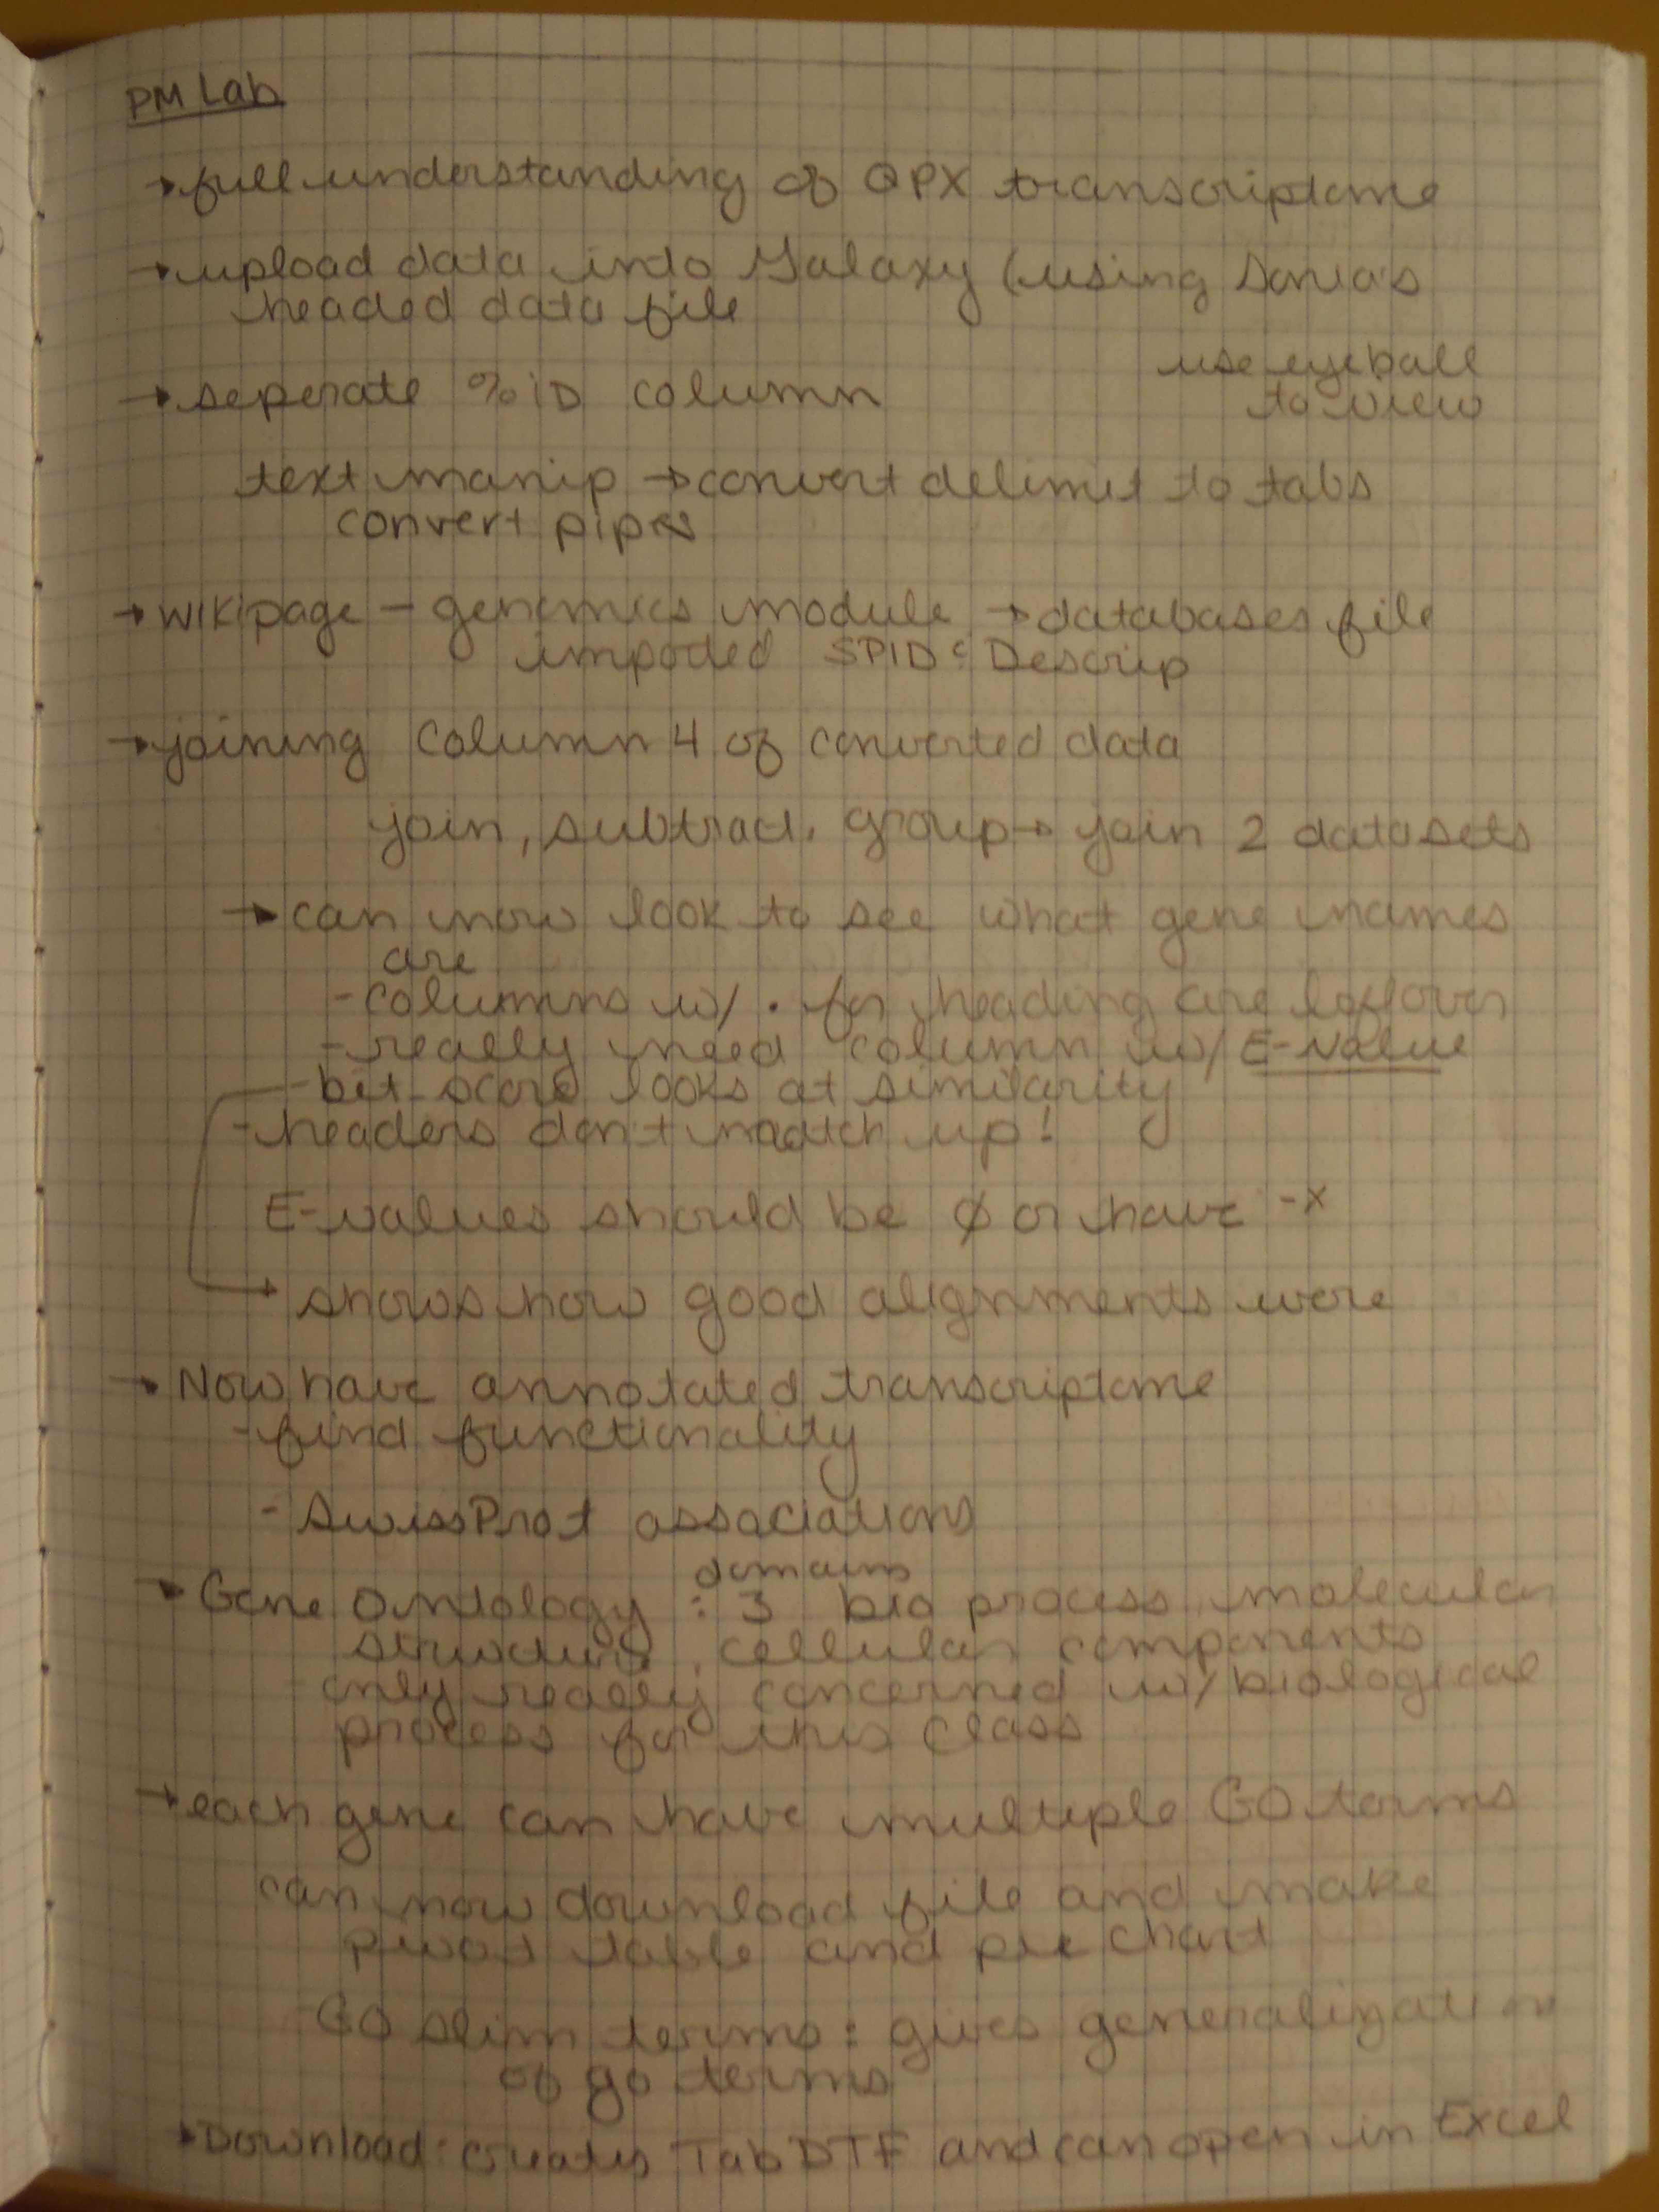 PM Lab
→ full understanding of QPX transcriptome
→ upload data into Galaxy (using Sonia's
headed data file
use eyeball
→ seperate %iD column
to view
text manip → convert delimit to tabs
convert pipes
→ wikipage – genomics module → databases file
imported SPID : Descrip
→ joining column 4 of converted data
join, subtract, group → join 2 datasets
→ can now look to see what gene names
are
- columns w/ . for heading are leftover
- really need column w/ E-value
- bit score looks at similarity
- headers don't match up!
E-values should be Ø or have -x
→ shows how good alignments were
→ Now have annotated transcriptome
- find functionality
- SwissProt associations
domains
→ Gene Ontology : 3 bio process, molecular
structure, cellular components
only really concerned w/ biological
process for this class
→ each gene can have multiple GO terms
can now download file and make
pivot table and pie chart
GO slim terms : gives generalization
of go terms
→ Download : creates Tab DTF and can open in Excel